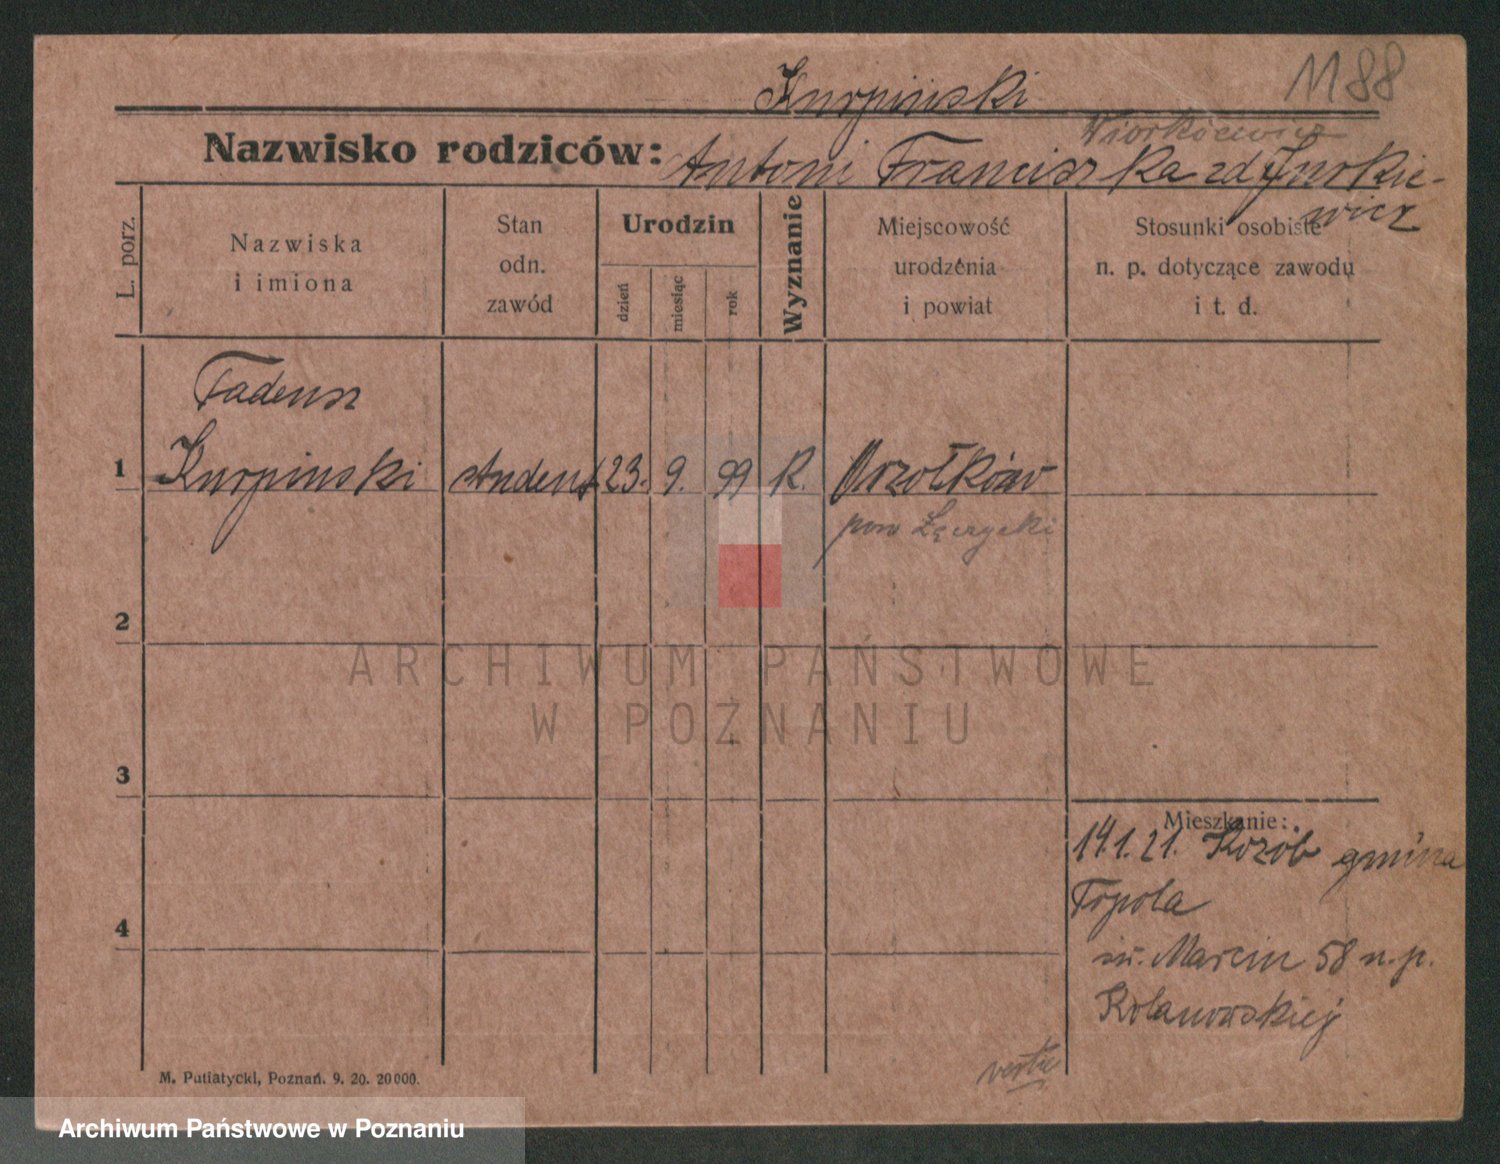 1188
Kurpiński
Wiorkiewicz
Nazwisko rodziców: Antoni Franciszka zd Jurkie-
wicz
L. porz.
Nazwiska
i imiona
Stan
odn.
zawód
Urodzin
dzień
miesiąc
rok
Wyznanie
Miejscowość
urodzenia
i powiat
Stosunki osobiste
n. p. dotyczące zawodu
i t. d.
Tadeusz
1 Kurpinski student 23. 9. 99 K.
pow Łęczycki
2
ARCHIWUM PAŃSTWOWE
W POZNANIU
3
Mieszkanie:
14.1.21. Kozub gmina
Topola
4
św. Marcin 58 n. p.
Kolanowskiej
verte
M. Putiatycki, Poznań. 9. 20. 20000.
Archiwum Państwowe w Poznaniu